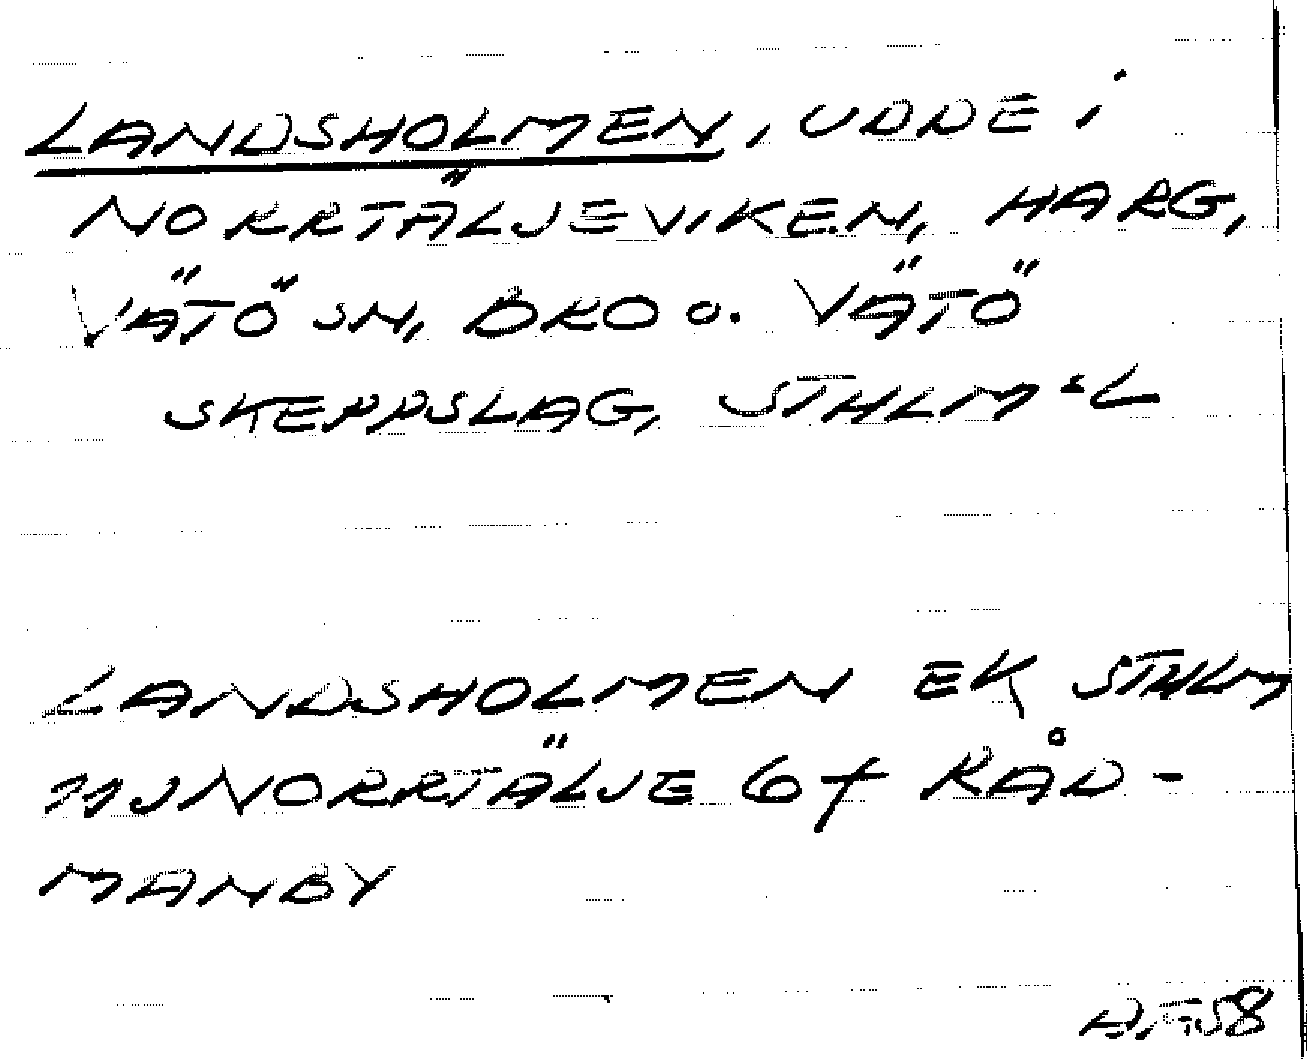 LANDSHOLMEN, UDDE i
NORRTÄLJEVIKEN, HARG,
VÄTÖ SN, BRO o. VÄTÖ
SKEPPSLAG, STHLM:S L
LANDSHOLMEN EK STHLM
11J NORRTÄLJE 6f RÅD-
MANBY